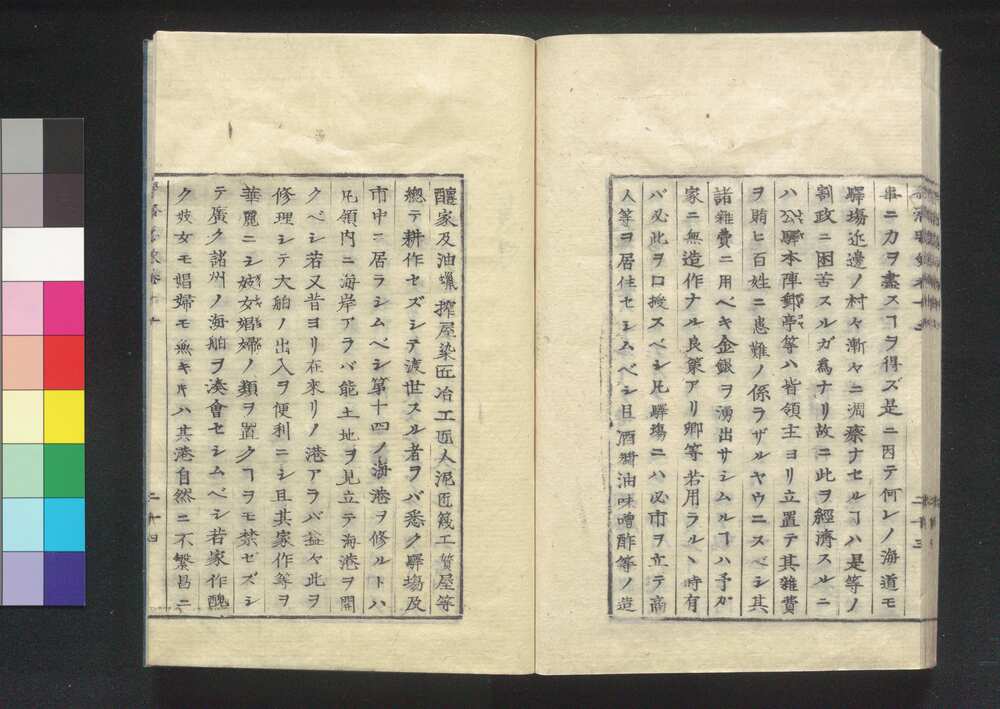 事ニ力ヲ盡スヿヲ得ズ是ニ因テ何レノ海道モ
驛塲近邊ノ村々漸々ニ凋瘵ナセルヿハ是等ノ
割政ニ困苦スルガ爲ナリ故ニ此ヲ經濟スルニ
ハ公驛本陣郵亭等ハ皆領主ヨリ立置テ其雑費
ヲ賄ヒ百姓ニ患難ノ係ラザルヤウニスベシ其
諸雑費ニ用ベキ金銀ヲ湧出サシムルヿハ予ガ
家ニ無造作ナル良策アリ卿等若用ラルヽ時有
バ必此ヲロ授スベシ凡驛塲ニハ必市ヲ立テ商
人等ヲ居住セシムベシ且酒醤油味噌酢等ノ造
釀家及油蠟搾屋染匠冶工匠人泥匠篾工質屋等
總テ耕作セズシテ渡世スル者ヲバ悉ク驛塲及
市中ニ居ラシムベシ第十四ノ海港ヲ修ルトハ
凡領内ニ海岸アラバ能土地ヲ見立テ海港ヲ開
クベシ若又昔ヨリ在來リノ港アラバ益々此ヲ
修理シテ大舶ノ出入ヲ便利ニシ且其家作等ヲ
華麗ニシ妓女娼婦ノ類ヲ置クヿヲモ禁ゼズシ
テ廣ク諸州ノ海舶ヲ湊會セシムベシ若家作醜
ク妓女モ娼婦モ無キ𪜈ハ其港自然ニ不繁昌ニ
二十四